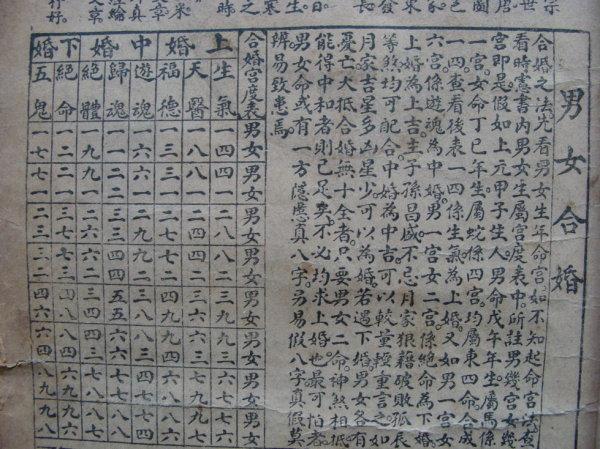 男女合婚
合婚之法先看男女生年命宮如不知起命宮法查
看時憲書內男女生屬宮度表中所註男幾宮女幾
宮即是假如上元甲子生人男命戊午年生屬馬係
一宮女命丁巳年生屬蛇係四宮均屬東四命合成
一四查看後表一四係生氣為上婚又如男一宮女
六宮係遊魂為中婚男一宮女二宮係絕命為下婚
上婚為上吉主子孫昌盛不忌月家狼藉破敗孤辰
等煞均可配合中婚為中吉可以較量輕重言之如
月家吉星多凶星少可以為婚若遇下婚男女各有
憂亡大抵合婚無十全者只要男女二命神煞相抵
能得中和者則已足矣不必均求上婚也最可怕者
男女命或有一方隱慝真八字另易假八字真假莫
辨易致患焉
合婚宮度表男女男女男女男女男女男女男女男女
上婚
生氣一四四一二八八二三九九三六七七六
天醫一八八一二四四二三六六三七九九七
福德一三三一二七七二四九九四六八八六
中婚
遊魂一六六一二九九二三八八三四七七四
歸魂一一二二三三四四五五六六七七八八九九
絕體一九九一二六六二三四四三七八八七
下婚
絕命一二二一三七七三四八八四六九九六
五鬼一七七一二三三二四六六四八九九八